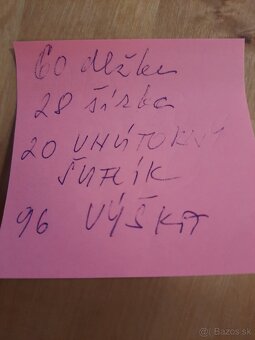 60 dĺžka
28 šírka
20 VNÚTORNÝ
ŠUFLÍK
96 VÝŠKA
© Bazos.sk